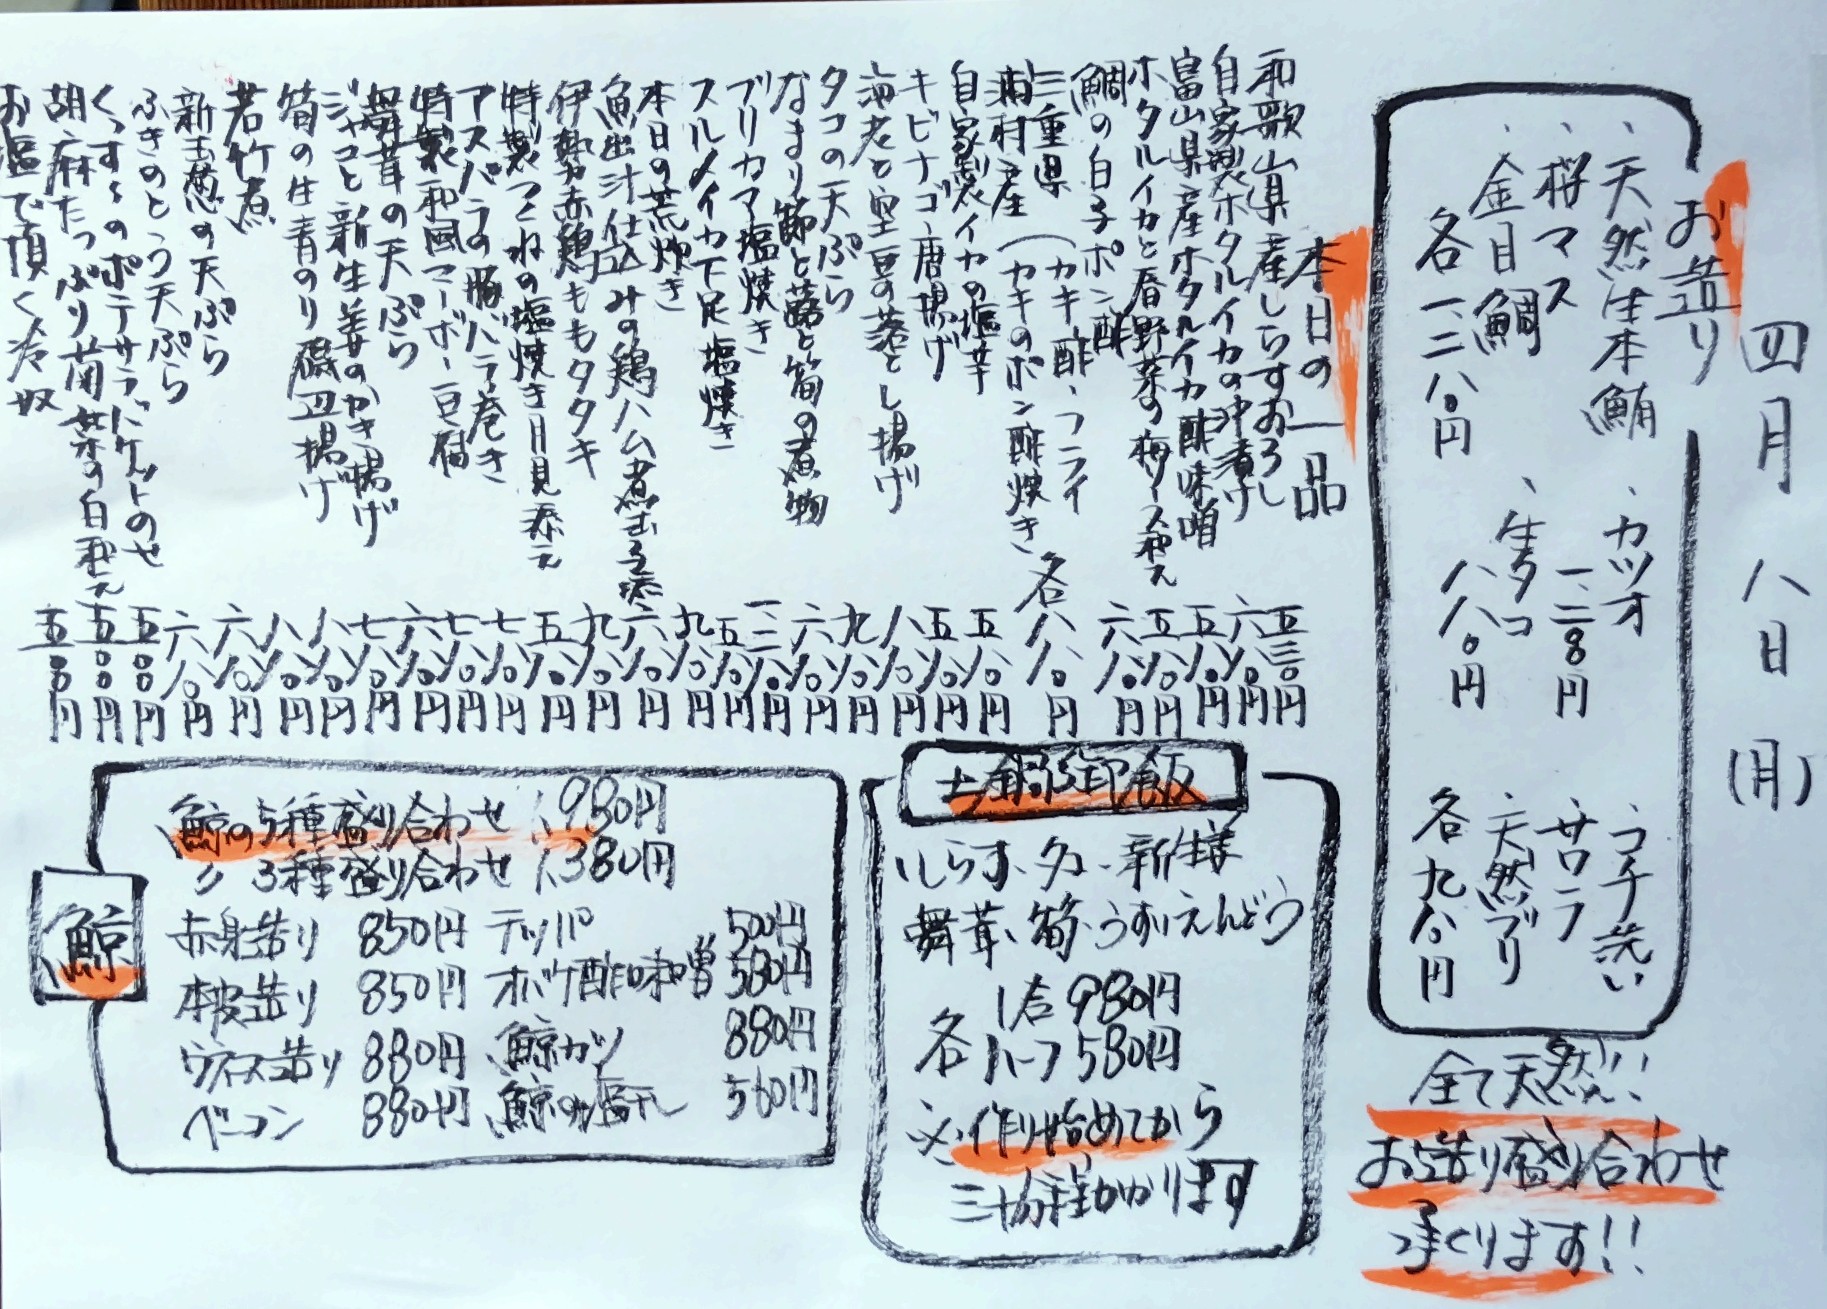 四月八日(月)
お造り
、天然生本鮪
、桜マス
、金目鯛
各一二八〇円
、カツオ
一二八〇円
、生タコ
八八〇円
、コチ洗い
、サワラ
、天然ブリ
各九八〇円
全て天然!!
お造り盛り合わせ
承ります!!
本日の一品
和歌山県産しらすおろし 五三〇円
自家製ホタルイカの沖漬け 六八〇円
富山県産ホタルイカ酢味噌 五八〇円
ホタルイカと春野菜の梅ソース和え 五八〇円
鯛の白子ポン酢 六八〇円
三重県浦村産(カキ酢、フライ
カキのポン酢焼き 各八八〇円
自家製イカの塩辛 五八〇円
キビナゴ唐揚げ 五八〇円
海老と空豆の落とし揚げ 八八〇円
タコの天ぷら 九八〇円
なまり節と蕗と筍の煮物 六八〇円
ブリカマ塩焼き 一二八〇円
スルメイカ下足塩焼き 五八〇円
本日の荒炊き 九八〇円
魚出汁仕込みの鶏ハム煮玉子添え 六八〇円
伊勢赤鶏ももタタキ 九八〇円
特製つくねの塩焼き月見添え 五八〇円
アスパラの豚バラ巻き 七八〇円
特製和風マーボー豆腐 七八〇円
舞茸の天ぷら 六八〇円
ジャコと新生姜のかき揚げ 七八〇円
筍の生青のり磯辺揚げ 八八〇円
若竹煮 八八〇円
新玉葱の天ぷら 六八〇円
ふきのとう天ぷら 六八〇円
くんすものポテサラバケットのせ 五八〇円
胡麻たっぷり菊菜の白和え 五八〇円
お塩で頂く冷奴 五八〇円
土鍋御飯
、しらす、タコ、新生姜
舞茸、筍、うすいえんどう
各 1合980円
ハーフ580円
※作り始めてから
三十分程かかります
鯨
鯨の5種盛り合わせ 1,980円
〃 3種盛り合わせ 1,380円
赤身造り 850円
本皮造り 850円
ウネス造り 880円
ベーコン 880円
テッパ 500円
オバケ酢味噌 580円
鯨カツ 880円
鯨の塩干し 560円